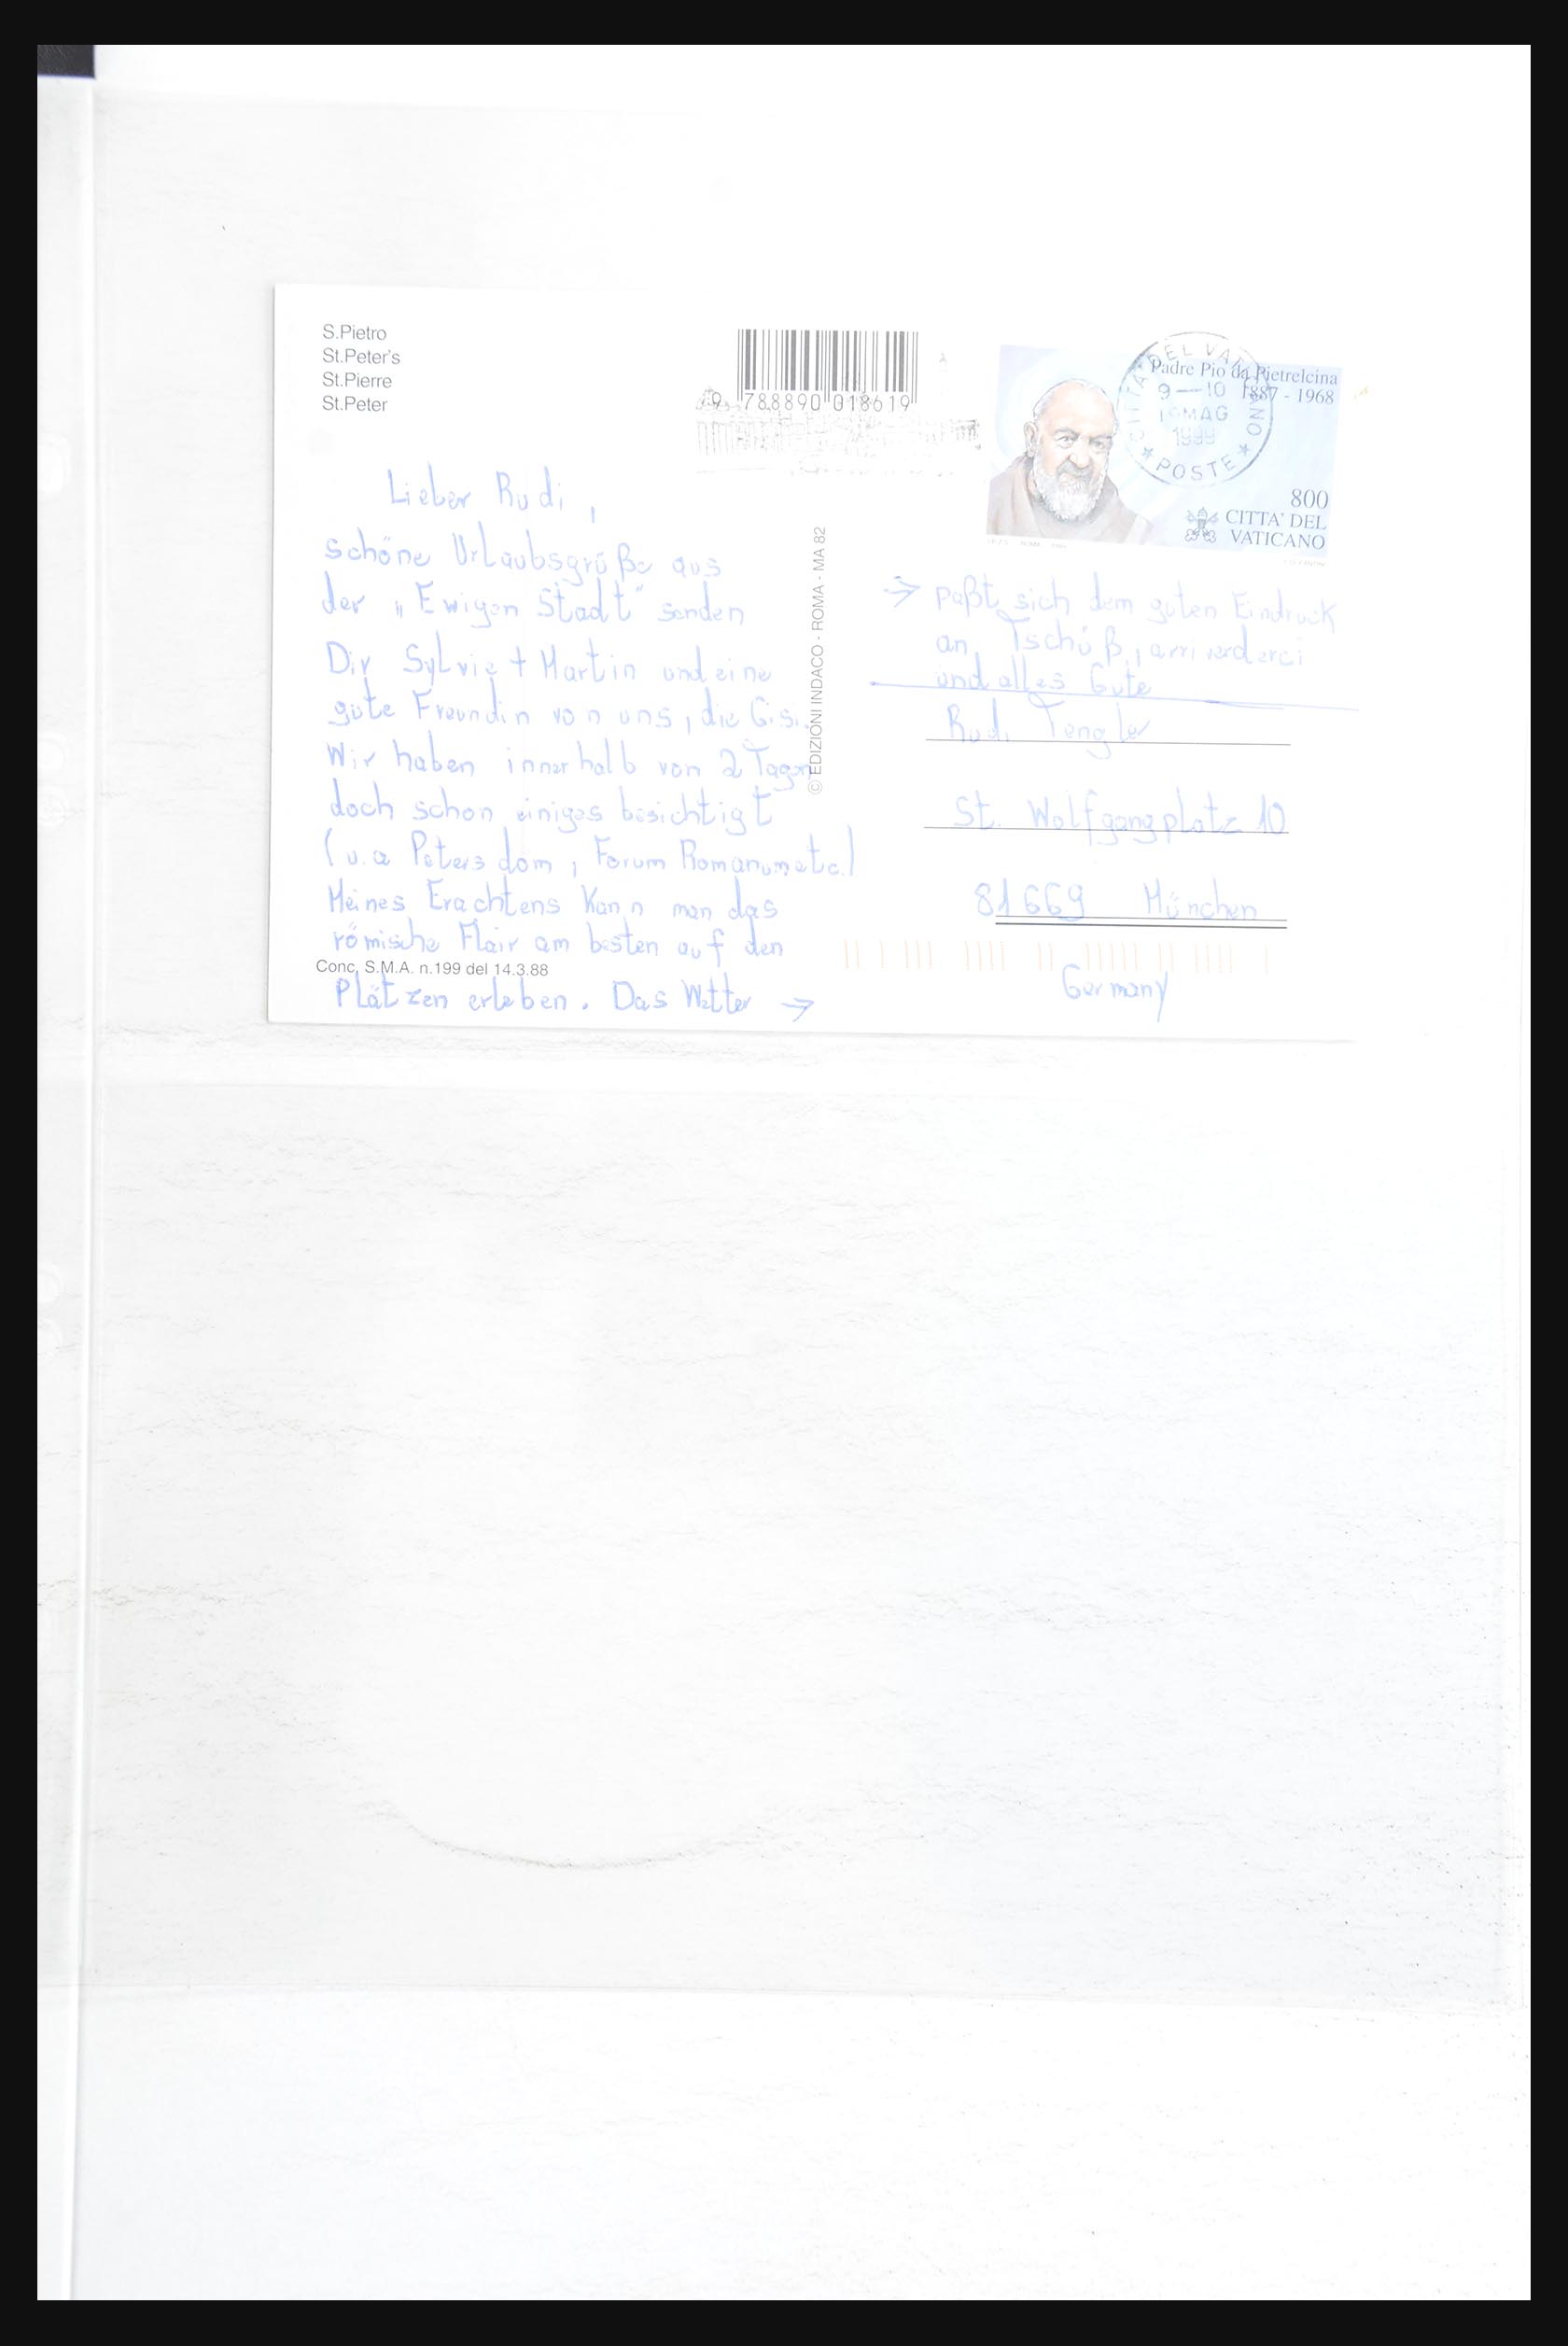 S.Pietro
St.Peter's
St.Pierre
St.Peter
9 788890 018619
CITTA' DEL VATICANO
9—10
MAG
1999
* POSTE *
Padre Pio da Pietrelcina
1887 - 1968
800
CITTA' DEL
VATICANO
Lieber Rudi,
schöne Urlaubsgrüße aus
der „Ewigen Stadt" senden
Dir Sylvie + Martin und eine
gute Freundin von uns, die Gisi.
Wir haben innerhalb von 2 Tagen
doch schon einiges besichtigt
(u.a Petersdom, Forum Romanum etc.)
Meines Erachtens kann man das
römische Flair am besten auf den
Conc. S.M.A. n.199 del 14.3.88
Plätzen erleben. Das Wetter →
© EDIZIONI INDACO - ROMA - MA 82
→ paßt sich dem guten Eindruck
an. Tschüß, arriverderci
und alles Gute
Rudi Tengler
St. Wolfgangplatz 10
81669 München
Germany